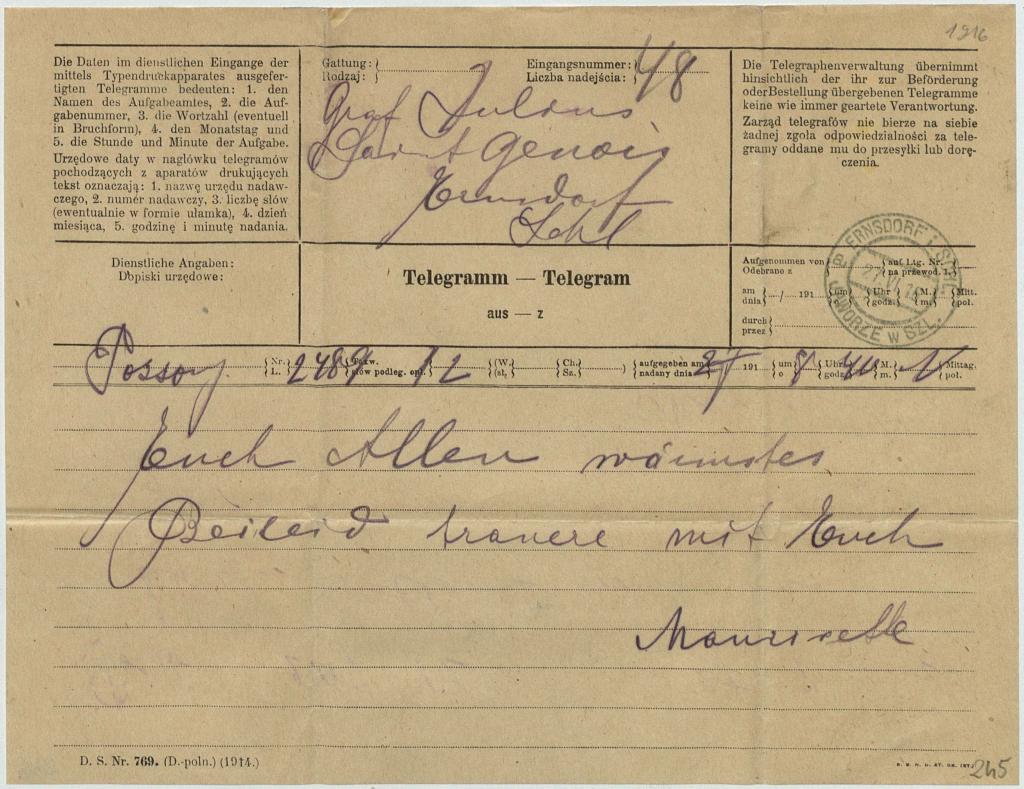 1916
Die Daten im dienstlichen Eingange der
mittels Typendruckapparates ausgefer-
tigten Telegramme bedeuten: 1. den
Namen des Aufgabeamtes, 2. die Auf-
gabenummer, 3. die Wortzahl (eventuell
in Bruchform), 4. den Monatstag und
5. die Stunde und Minute der Aufgabe.
Urzędowe daty w nagłówku telegramów
pochodzących z aparatów drukujących
tekst oznaczają: 1. nazwę urzędu nadaw-
czego, 2. numer nadawczy, 3. liczbę słów
(ewentualnie w formie ułamka), 4. dzień
miesiąca, 5. godzinę i minutę nadania.
Gattung:
Rodzaj:
Eingangsnummer:
Liczba nadejścia:
48
Graf Julius
Saint Genois
Ernsdorf
Schl
Die Telegraphenverwaltung übernimmt
hinsichtlich der ihr zur Beförderung
oder Bestellung übergebenen Telegramme
keine wie immer geartete Verantwortung.
Zarząd telegrafów nie bierze na siebie
żadnej zgoła odpowiedzialności za tele-
gramy oddane mu do przesyłki lub dorę-
czenia.
Dienstliche Angaben:
Dopiski urzędowe:
Telegramm — Telegram
aus — z
Aufgenommen von
Odebrano z
auf Ltg. Nr.
na przewod. l.
am
dnia
./. 191
um
o
Uhr
godz.
M.
m.
Mitt.
poł.
durch
przez
ERNSDORF i. SCHL.
JAWORZE w SZL.
Nr.
L.
Taxw.
słów podleg. opł.
12
(W.
(sł.
Ch.
Sz.
)
aufgegeben am
nadany dnia
27
191
um
o
8
Uhr
godz.
40
M.
m.
Mittag.
poł.
Euch Allen wärmstes
Beileid trauere mit Euch
D. S. Nr. 769. (D.-poln.) (1914.)
245